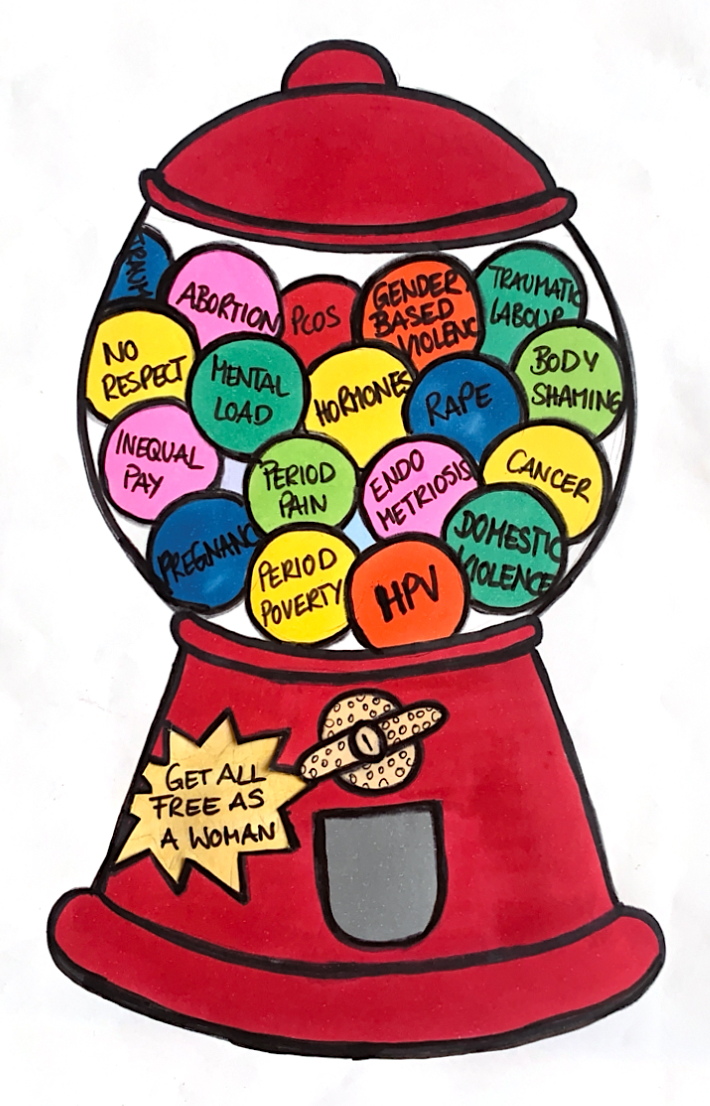 TRAUM
ABORTION
PCOS
GENDER
BASED
VIOLENC
TRAUMATIC
LABOUR
NO
RESPECT
MENTAL
LOAD
HORMONES
RAPE
BODY
SHAMING
INEQUAL
PAY
PERIOD
PAIN
ENDO
METRIOSIS
CANCER
PREGNANC
PERIOD
POVERTY
HPV
DOMESTIC
VIOLENCE
GET ALL
FREE AS
A WOMAN